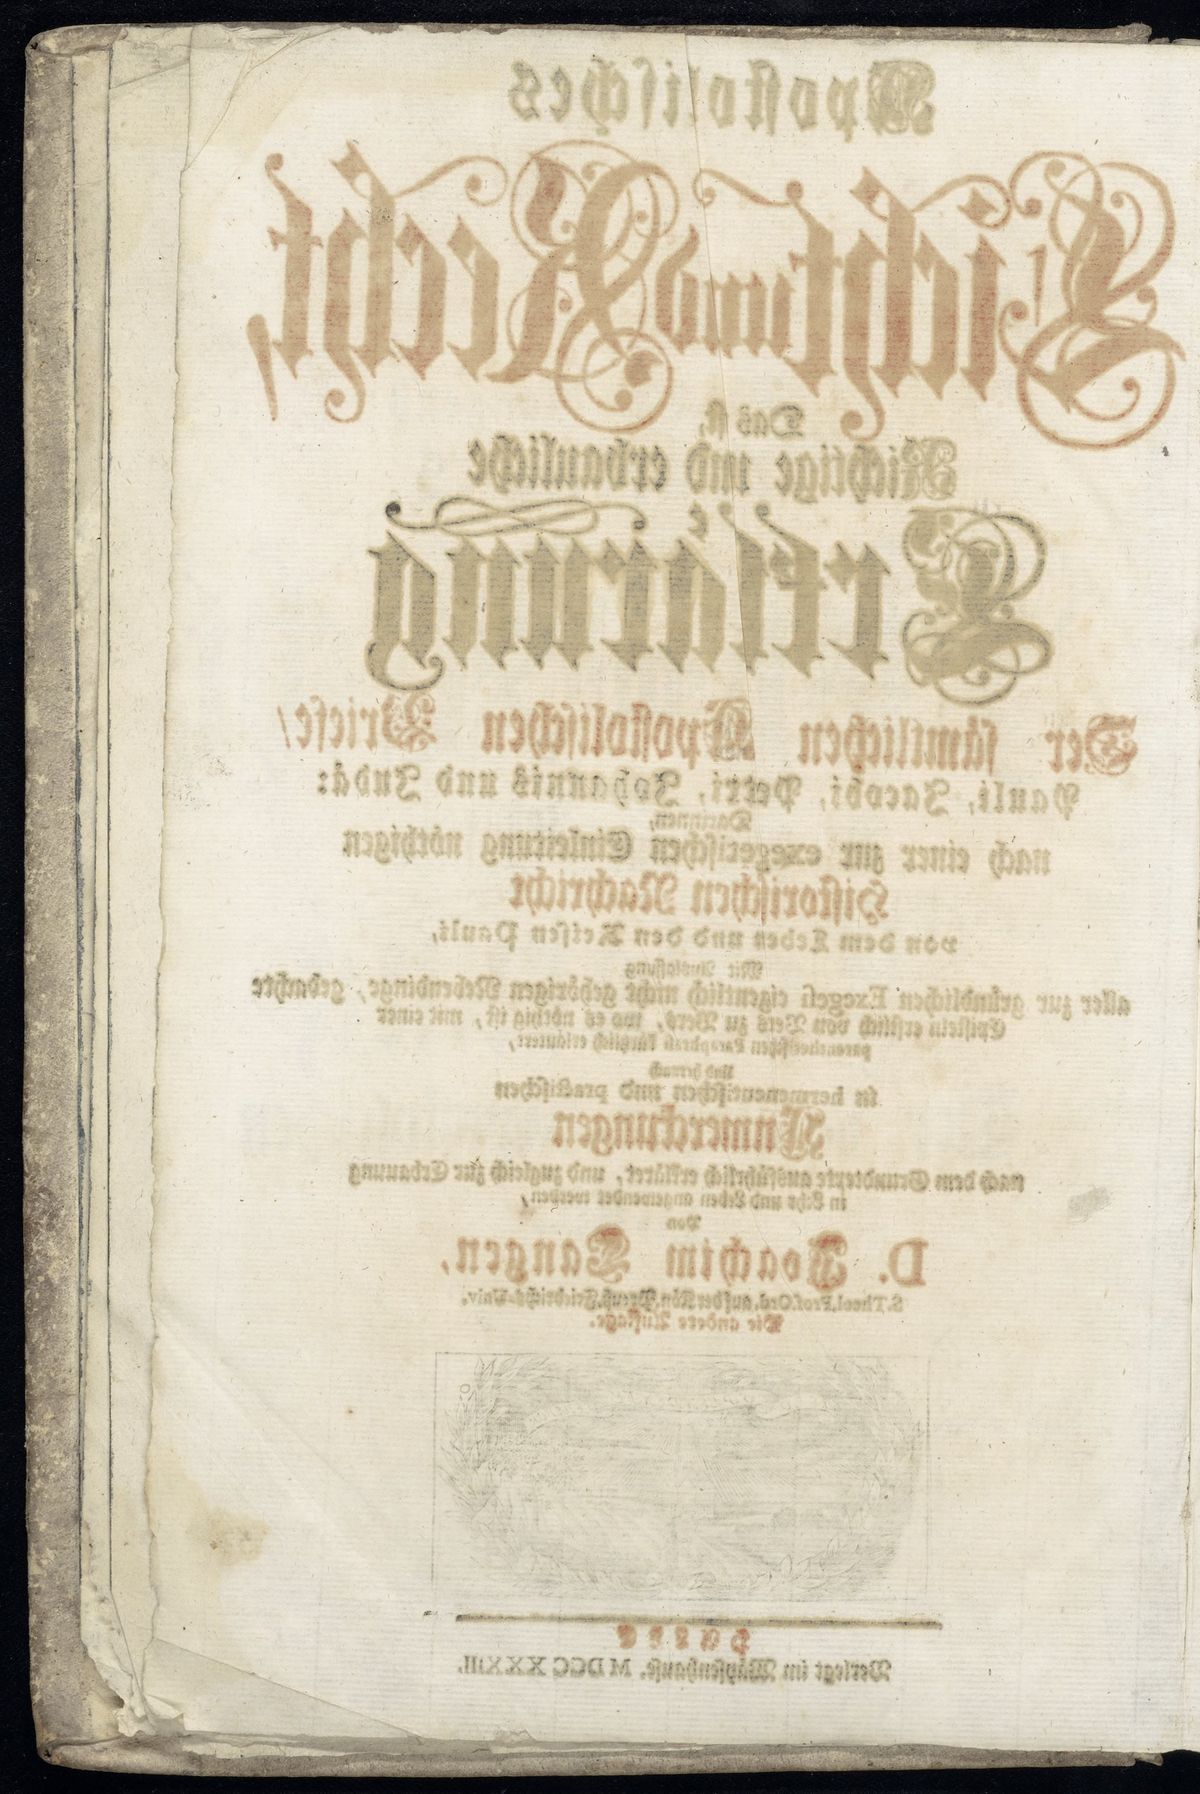 Apostolisches
Licht und Recht,
Das ist,
Richtige und erbauliche
Erklärung
Der sämtlichen Apostolischen Briefe/
Pauli, Jacobi, Petri, Johannis und Judä:
Darinnen,
nach einer zur exegetischen Einleitung nöthigen
Historischen Nachricht
von dem Leben und den Reisen Pauli,
Mit Auslassung
aller zur gründlichen Exegesi eigentlich nicht gehörigen Nebendinge, gedachte
Episteln erstlich von Vers zu Vers, wo es nöthig ist, mit einer
parenthetischen Paraphrasi kürtzlich erläutert,
Und hernach
in hermeneutischen und practischen
Anmerckungen
nach dem Grundtexte ausführlich erkläret, und zugleich zur Erbauung
in Lehr und Leben angewendet werden,
Von
D. Joachim Langen,
S. Theol. Prof. Ord. auf der Kön. Preuß. Friedrichs-Univ.
Die andere Auflage.
HALLE
Verlegt im Wäysenhause, MDCCXXXIII.